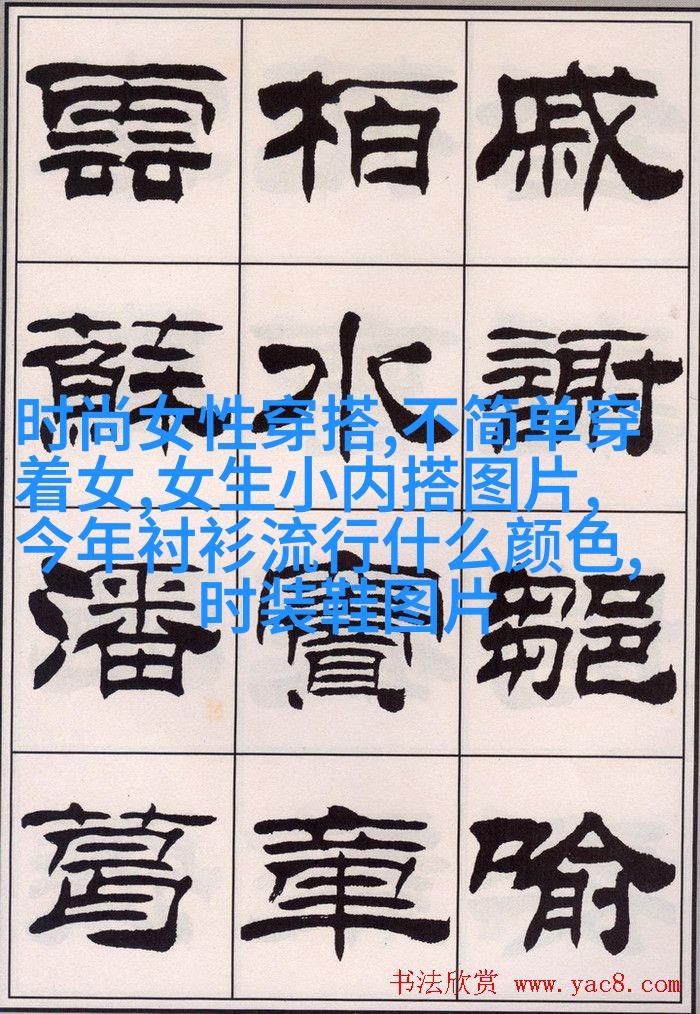 戚謝鄒喻
柏水竇章
雲蘇潘葛
时尚女性穿搭,不简单穿
着女,女生小内搭图片,
今年衬衫流行什么颜色,
时装鞋图片
书法欣赏 www.yac8.com